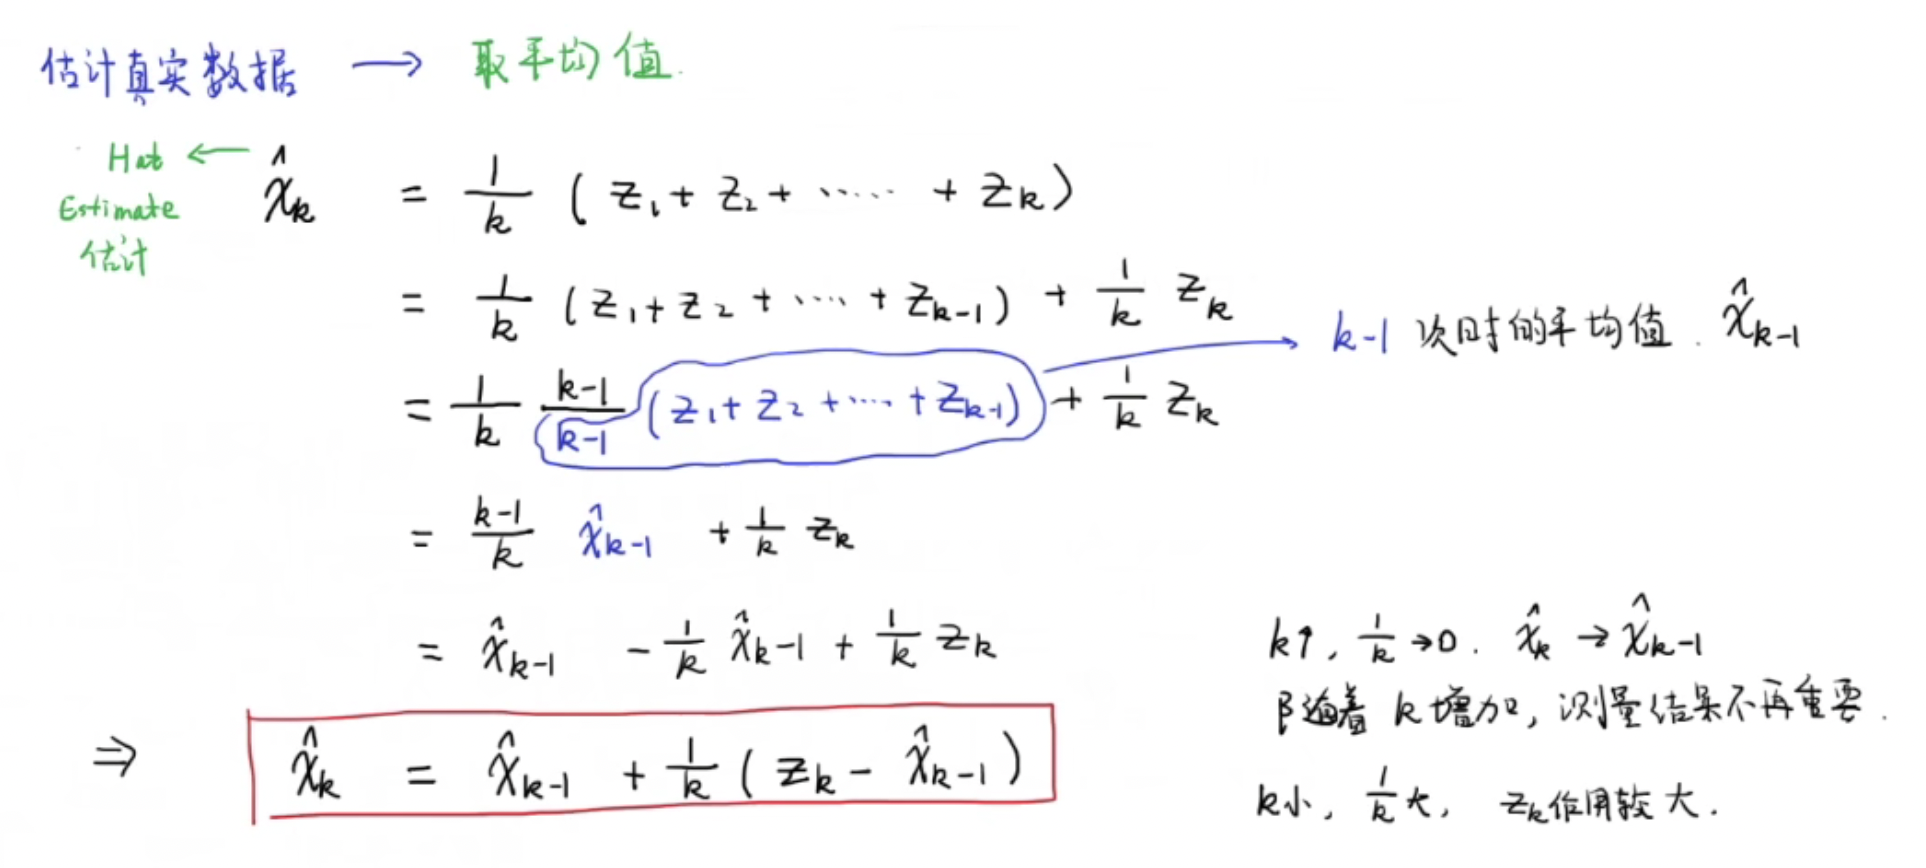 估计真实数据 → 取平均值.
Hat ← x̂ₖ = 1/k ( z₁ + z₂ + ······ + zₖ )
Estimate
估计
= 1/k ( z₁ + z₂ + ···· + zₖ₋₁ ) + 1/k zₖ
= 1/k (k-1)/(k-1) ( z₁ + z₂ + ···· + zₖ₋₁ ) + 1/k zₖ → k-1 次时的平均值. x̂ₖ₋₁
= (k-1)/k x̂ₖ₋₁ + 1/k zₖ
= x̂ₖ₋₁ - 1/k x̂ₖ₋₁ + 1/k zₖ
⇒ x̂ₖ = x̂ₖ₋₁ + 1/k ( zₖ - x̂ₖ₋₁ )
k↑, 1/k → 0. x̂ₖ → x̂ₖ₋₁
随着 k 增加, 测量结果不再重要.
k小, 1/k 大, zₖ作用较大.